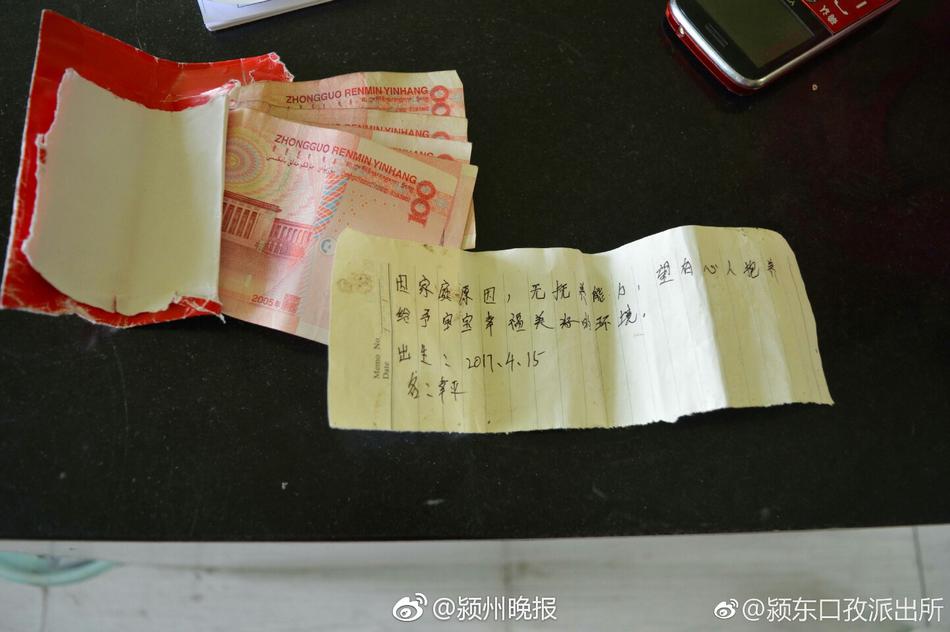 ZHONGGUO RENMIN YINHANG
100
ZHONGGUO RENMIN YINHANG
100
2005年
因家庭原因，无抚养能力，望有心人抱养
给予宝宝幸福美好的环境。
出生：2017.4.15
名：幸平
Memo No.
Date
@颍州晚报
@颍东口孜派出所